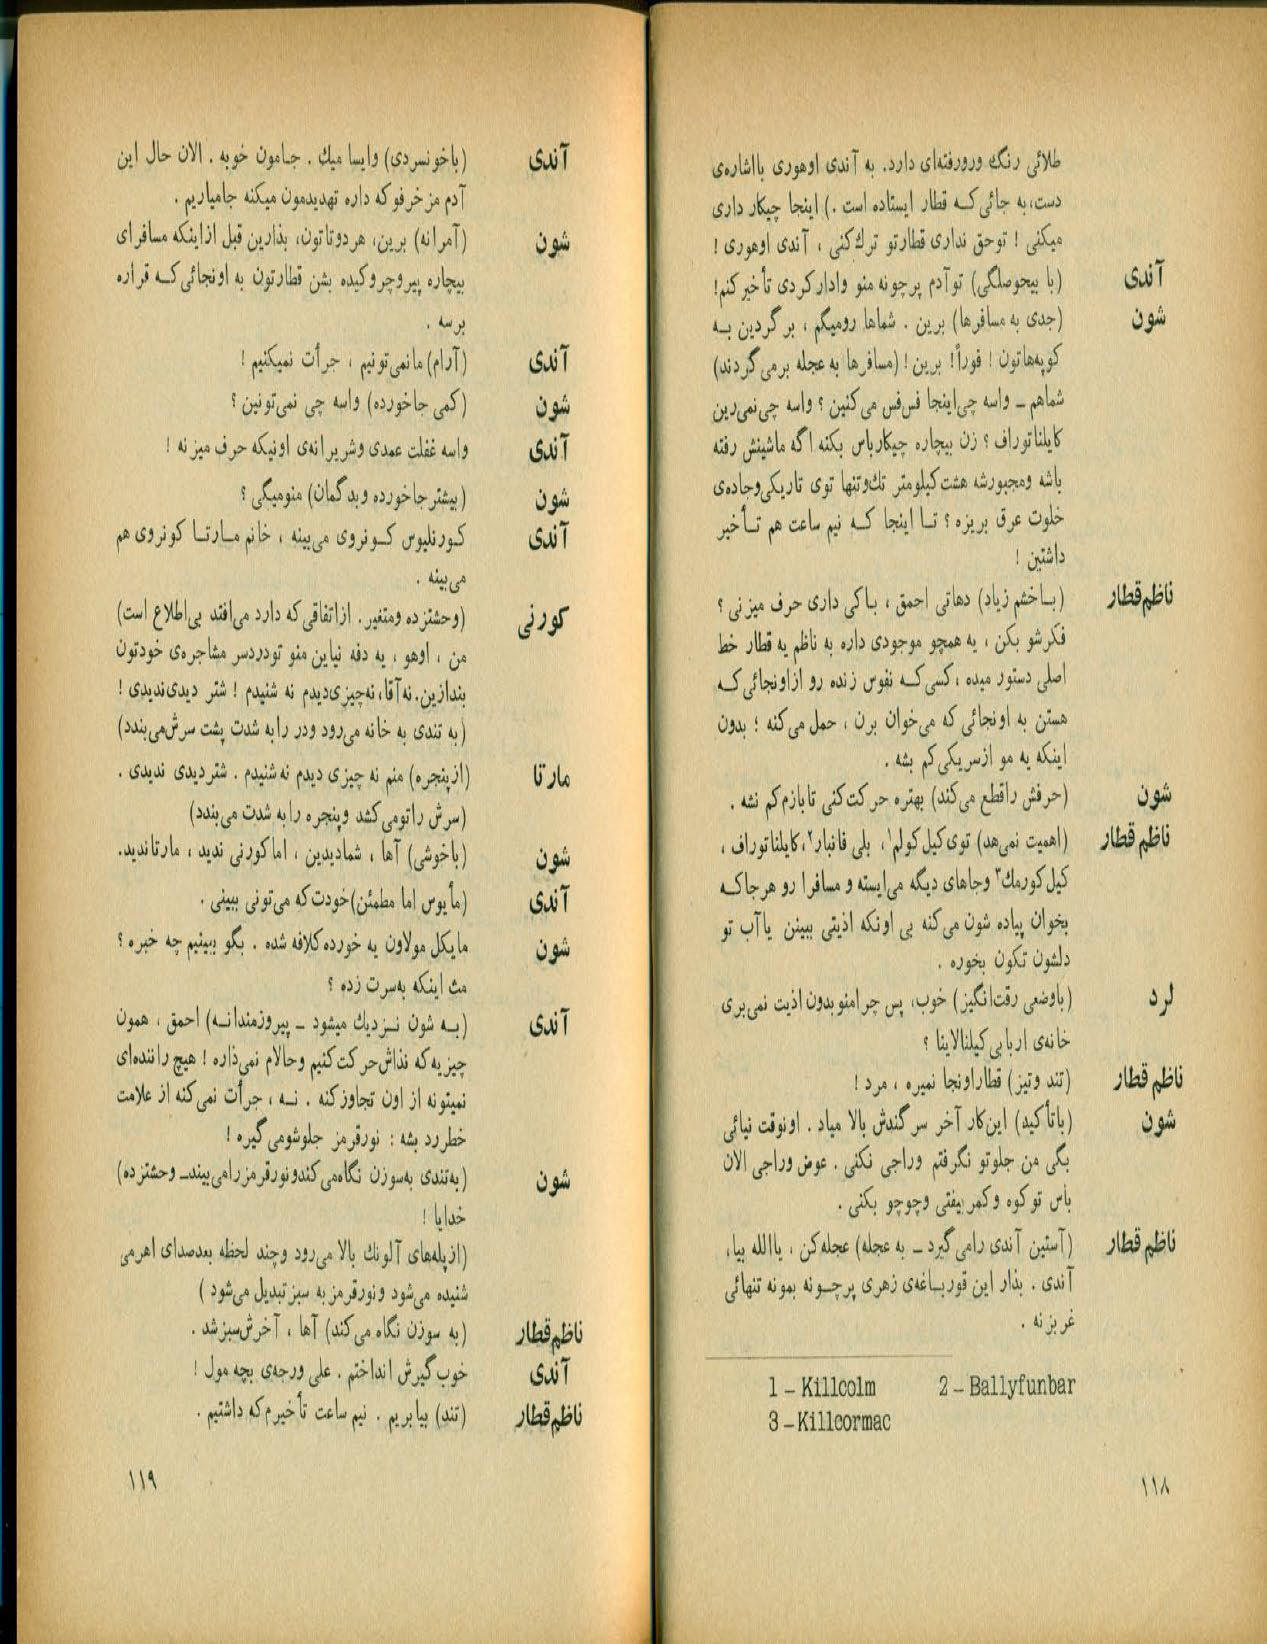 طلائی رنگ ورورفته‌ای دارد. به آندی اوهوری بااشاره‌ی
دست، به جائی‌که قطار ایستاده است.) اینجا چیکار داری
میکنی ! توحق نداری قطارتو ترك‌کنی ، آندی اوهوری !
آندی (با بیحوصلگی) توآدم پرچونه منو وادارکردی تأخیرکنم!
شون (جدی به مسافرها) برین . شماها رومیگم ، برگردین به
کوپه‌هاتون ! فوراً! برین ! (مسافرها به عجله برمی‌گردند)
شماهم ـ واسه چی‌اینجا فس‌فس می‌کنین ؟ واسه چی‌نمی‌رین
کایلناتوراف ؟ زن بیچاره چیکارباس بکنه اگه ماشینش رفته
باشه ومجبورشه هشت‌کیلومتر تك‌وتنها توی تاریکی‌وجاده‌ی
خلوت عرق بریزه ؟ تا اینجا که نیم ساعت هم تأخیر
داشتین !
ناظم‌قطار (باخشم زیاد) دهاتی احمق ، باکی داری حرف میزنی ؟
فکرشو بکن ، یه همچو موجودی داره به ناظم یه قطار خط
اصلی دستور میده ، کسی‌که نفوس زنده رو ازاونجائی‌که
هستن به اونجائی که می‌خوان برن ، حمل می‌کنه ؛ بدون
اینکه یه مو ازسریکی‌کم بشه .
شون (حرفش راقطع می‌کند) بهتره حرکت‌کنی تابازم‌کم نشه .
ناظم قطار (اهمیت نمی‌هد) توی‌کیل‌کولم۱، بلی فانبار۲، کایلناتوراف ،
کیل‌کورمك۳ وجاهای دیگه می‌ایسته و مسافرا رو هرجاکه
بخوان پیاده شون می‌کنه بی اونکه اذیتی ببینن یاآب تو
دلشون تکون بخوره .
لرد (باوضعی رقت‌انگیز) خوب، پس چرامنوبدون اذیت نمی‌بری
خانه‌ی اربابی‌کیلنالاینا ؟
ناظم قطار (تند وتیز) قطاراونجا نمیره ، مرد !
شون (باتأکید) این‌کار آخر سرگندش بالا میاد . اونوقت نیائی
بگی من جلوتو نگرفتم وراجی نکنی . عوض وراجی الان
باس توکوه وکمر بیفتی وچوچو بکنی .
ناظم قطار (آستین آندی رامی‌گیرد ـ به عجله) عجله‌کن ، یاالله بیا،
آندی . بذار این قورباغه‌ی زهری پرچونه بمونه تنهائی
غر بزنه .
1 – Killcolm 2 – Ballyfunbar
3 – Killcormac
۱۱۸
آندی (باخونسردی) وایسا میك . جامون خوبه . الان حال این
آدم مزخرفوکه داره تهدیدمون میکنه جامیاریم .
شون (آمرانه) برین، هردوتاتون، بذارین قبل ازاینکه مسافرای
بیچاره پیروچروکیده بشن قطارتون به اونجائی‌که قراره
برسه .
آندی (آرام) مانمی‌تونیم ، جرأت نمیکنیم !
شون (کمی جاخورده) واسه چی نمی‌تونین ؟
آندی واسه غفلت عمدی وشریرانه‌ی اونیکه حرف میزنه !
شون (بیشترجاخورده وبدگمان) منومیگی ؟
آندی کورنلیوس کونروی می‌بینه ، خانم مارتا کونروی هم
می‌بینه .
کورنی (وحشتزده ومتغیر. ازاتفاقی‌که دارد می‌افتد بی‌اطلاع است)
من ، اوهو ، یه دفه نیاین منو تودردسر مشاجره‌ی خودتون
بندازین. نه‌آقا، نه‌چیزی‌دیدم نه شنیدم ! شتر دیدی‌ندیدی !
(به تندی به خانه می‌رود ودر رابه شدت پشت سرش‌می‌بندد)
مارتا (ازپنجره) منم نه چیزی دیدم نه‌شنیدم . شتردیدی ندیدی .
(سرش راتومی‌کشد وپنجره رابه شدت می‌بندد)
شون (باخوشی) آها ، شمادیدین ، اماکورنی ندید ، مارتاندید.
آندی (مأیوس اما مطمئن)خودت‌که می‌تونی ببینی .
شون مایکل مولاون یه خورده‌کلافه شده . بگو ببینیم چه خبره ؟
مث اینکه به‌سرت زده ؟
آندی (به شون نزدیك میشود ـ پیروزمندانه) احمق ، همون
چیزیه‌که نذاش‌حرکت‌کنیم وحالام نمی‌ذاره ! هیچ راننده‌ای
نمیتونه از اون تجاوزکنه . نه ، جرأت نمی‌کنه از علامت
خطررد بشه : نورقرمز جلوشومی‌گیره !
شون (به‌تندی به‌سوزن نگاه‌می‌کندونورقرمزرامی‌بیندـ وحشتزده)
خدایا !
(ازپله‌های آلونك بالا می‌رود وچند لحظه بعدصدای اهرمی
شنیده می‌شود ونورقرمز به سبزتبدیل می‌شود )
ناظم‌قطار (به سوزن نگاه می‌کند) آها ، آخرش‌سبزشد .
آندی خوب‌گیرش انداختم . علی ورجه‌ی بچه مول !
ناظم‌قطار (تند) بیابریم . نیم ساعت تأخیرم‌که داشتیم .
۱۱۹